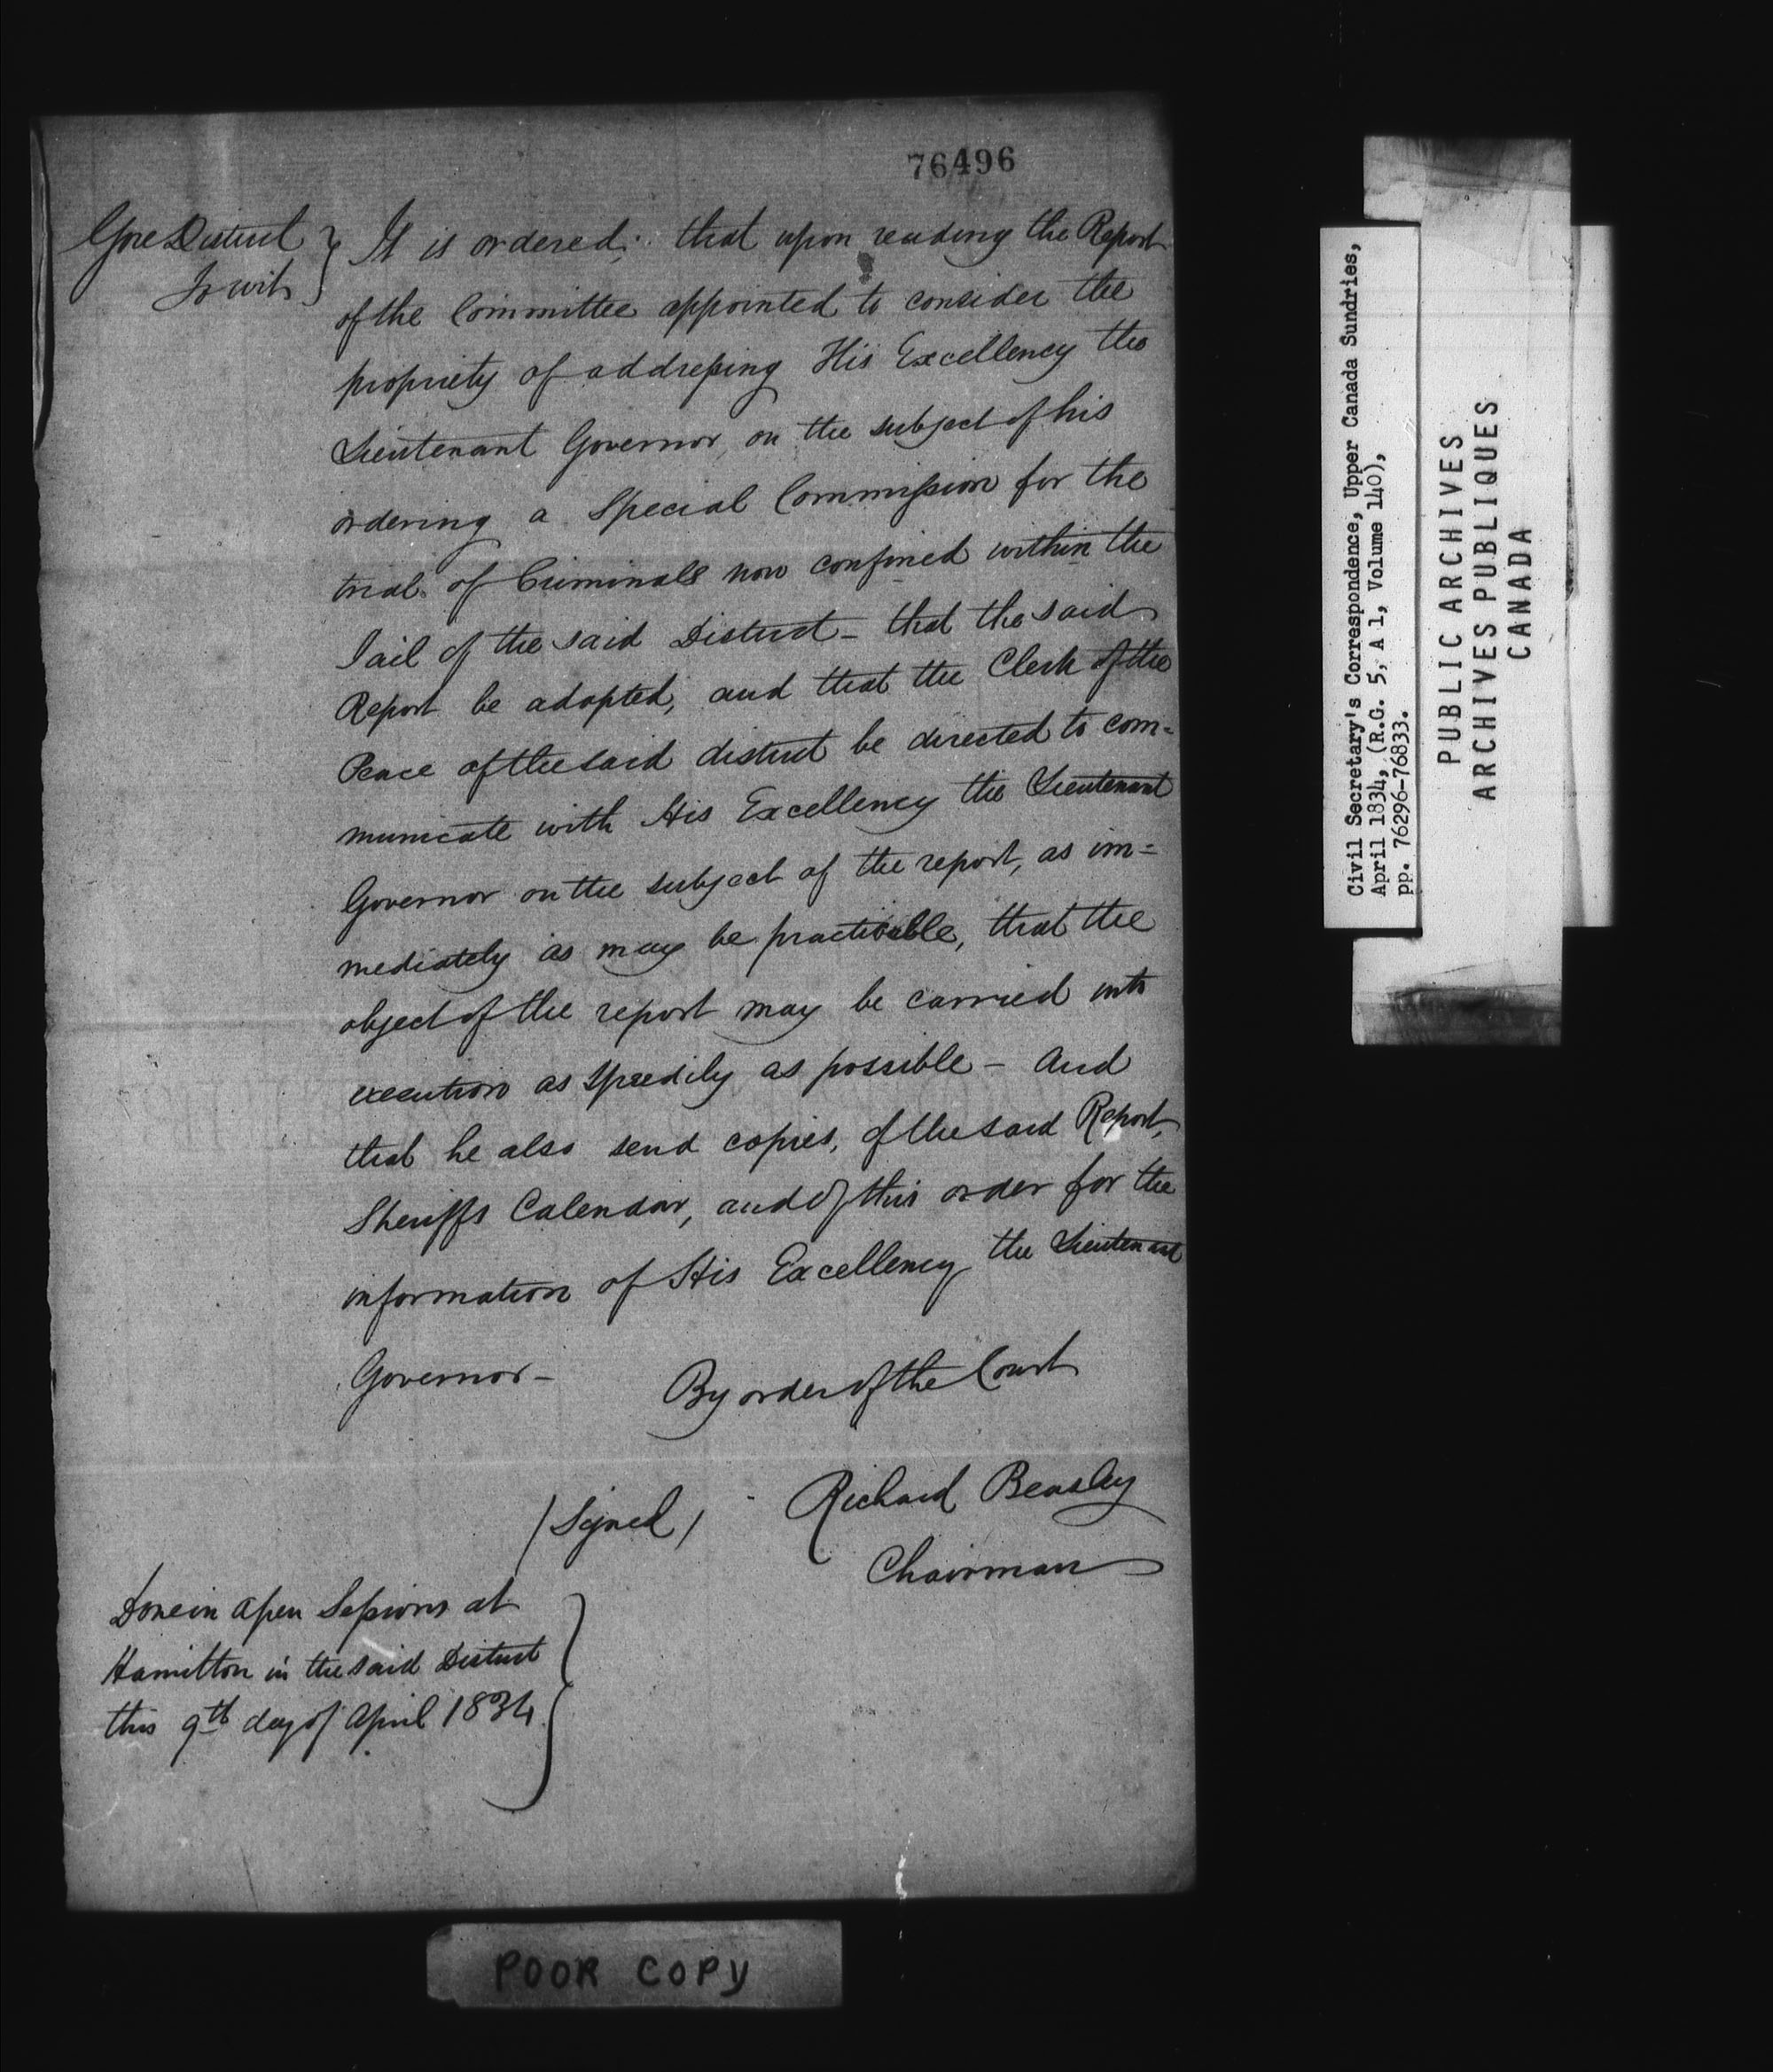 76496
Gore District
To wit
It is ordered; that upon reading the Report
of the Committee appointed to consider the
propriety of addressing His Excellency the
Lieutenant Governor, on the subject of his
ordering a Special Commission for the
trial of Criminals now confined within the
Jail of the said District - that the said
Report be adopted, and that the Clerk of the
Peace of the said district be directed to com=
municate with His Excellency the Lieutenant
Governor on the subject of the report, as im=
mediately as may be practicable, that the
object of the report may be carried into
execution as speedily as possible - and
that he also send copies, of the said Report,
Sheriffs Calendar, and of this order for the
information of His Excellency the Lieutenant
Governor -
By order of the Court
/Signed/ Richard Beasley
Chairman
Done in open Sessions at
Hamilton in the said District
this 9th day of April 1834
POOR COPY
Civil Secretary's Correspondence, Upper Canada Sundries,
April 1834, (R.G. 5, A 1, Volume 140),
pp. 76296-76833.
PUBLIC ARCHIVES
ARCHIVES PUBLIQUES
CANADA